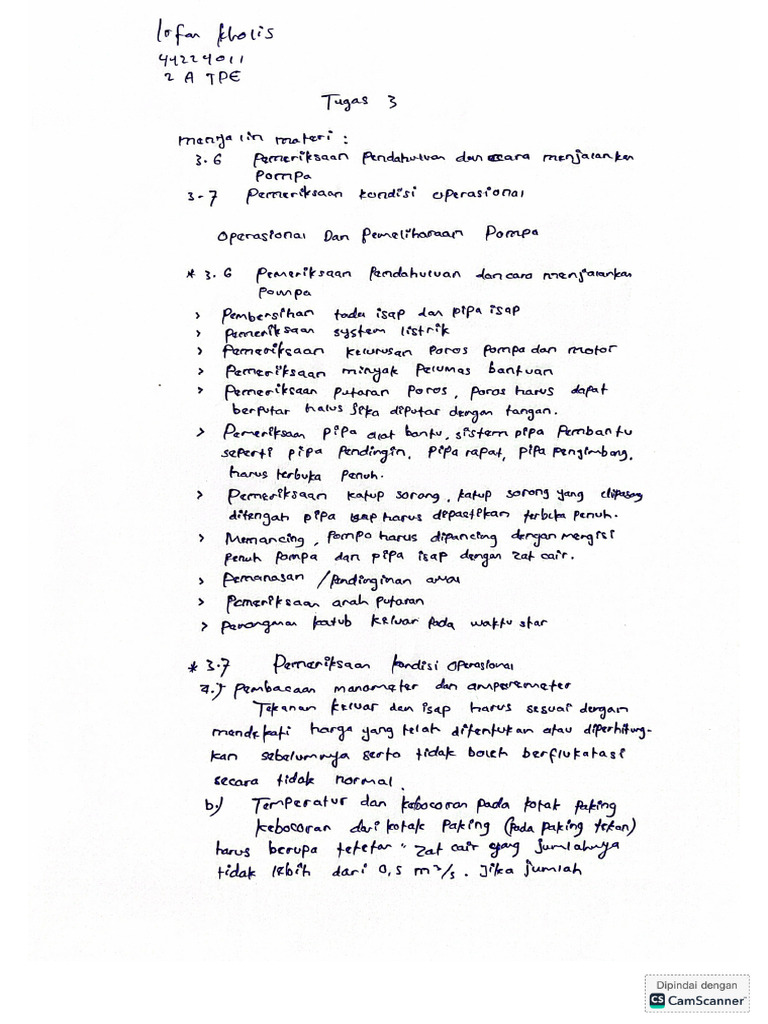 Iofan Kholis
44224011
2 A TPE
Tugas 3
menyalin materi :
3.6 Pemeriksaan Pendahuluan dan cara menjalankan
Pompa
3-7 Pemeriksaan kondisi operasional
Operasional Dan Pemeliharaan Pompa
* 3.6 Pemeriksaan Pendahuluan dan cara menjalankan
Pompa
> Pembersihan tadu isap dan pipa isap
> Pemeriksaan system listrik
> Pemeriksaan kelurusan poros pompa dan motor
> Pemeriksaan minyak Pelumas bantuan
> Pemeriksaan putaran Poros, Poros harus dapat
berputar halus jika diputar dengan tangan.
> Pemeriksaan pipa alat bantu, sistem pipa Pembantu
seperti pipa Pendingin, Pipa rapat, pipa pengimbang,
harus terbuka Penuh.
> Pemeriksaan katup sorong, katup sorong yang dipasang
ditengah pipa isap harus dipastikan terbuka penuh.
> Memancing, Pompa harus dipancing dengan mengisi
Penuh Pompa dan pipa isap dengan zat cair.
> Pemanasan / Pendinginan awal
> Pemeriksaan arah putaran
> Penanganan katub keluar pada waktu star
* 3.7 Pemeriksaan kondisi operasional
a.) Pembacaan manometer dan amperemeter
Tekanan keluar dan isap harus sesuai dengan
mendekati harga yang telah ditentukan atau diperhitung-
kan sebelumnya serta tidak boleh berflukatasi
secara tidak normal.
b.) Temperatur dan kebocoran pada kotak paking
kebocoran dari kotak Paking (Pada Paking tekan)
harus berupa tetetan" zat cair yang jumlahnya
tidak lebih dari 0,5 m³/s. Jika jumlah
Dipindai dengan
CS CamScanner